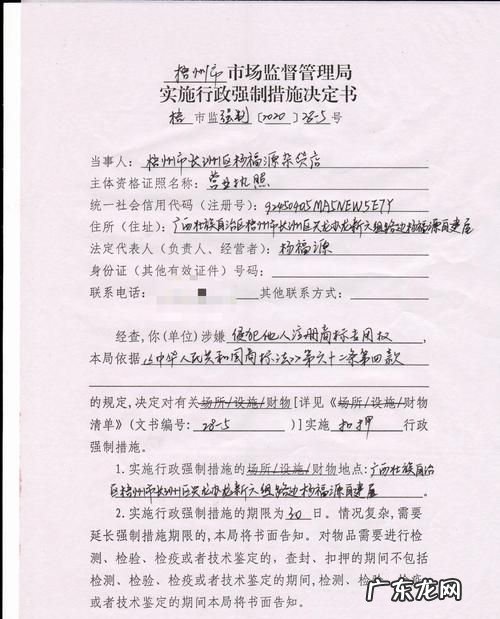 梧州市 市场监督管理局
实施行政强制措施决定书
梧 市监 强制 〔2020〕28-5 号
当事人：梧州市长洲区杨福源杂货店
主体资格证照名称：营业执照
统一社会信用代码（注册号）：92450405MA5NEW5E7Y
住所（住址）：广西壮族自治区梧州市长洲区兴龙办龙新六组路边杨福源自建屋
法定代表人（负责人、经营者）：杨福源
身份证（其他有效证件）号码：
联系电话： 其他联系方式：
经查，你(单位)涉嫌 侵犯他人注册商标专用权
本局依据《中华人民共和国商标法》第六十二条第四款
的规定，决定对有关场所/设施/财物[详见《场所/设施/财物
清单》(文书编号： 28-5 )]实施 扣押 行政
强制措施。
1.实施行政强制措施的场所/设施/财物地点：广西壮族自治
区梧州市长洲区兴龙办龙新六组路边杨福源自建屋
2.实施行政强制措施的期限为 30 日。情况复杂，需要
延长强制措施期限的，本局将书面告知。对物品需要进行检
测、检验、检疫或者技术鉴定的，查封、扣押的期间不包括
检测、检验、检疫或者技术鉴定的期间，检测、检验、检疫
或者技术鉴定的期间本局将书面告知。
广东龙网